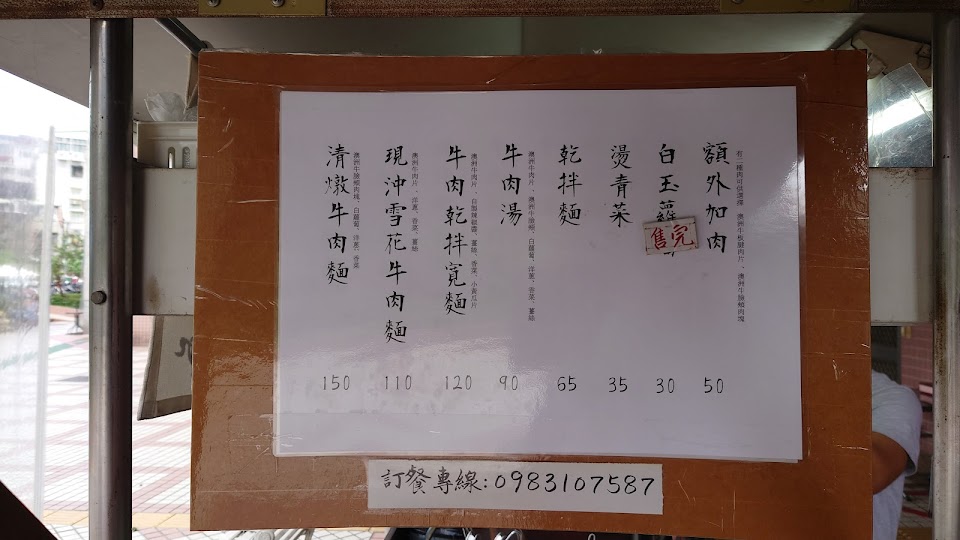 額外加肉
有二種肉可供選擇 澳洲牛板腱肉片、澳洲牛臉頰肉塊
50
白玉蘿
售完
30
燙青菜
35
乾拌麵
65
牛肉湯
澳洲牛肉片、澳洲牛臉頰、白蘿蔔、洋蔥、香菜、薑絲
90
牛肉乾拌寬麵
澳洲牛肉片、自製辣椒醬、薑絲、香菜、小黃瓜片
120
現沖雪花牛肉麵
澳洲牛肉片、洋蔥、香菜、薑絲
110
清燉牛肉麵
澳洲牛臉頰肉塊、白蘿蔔、洋蔥、香菜
150
訂餐專線:0983107587